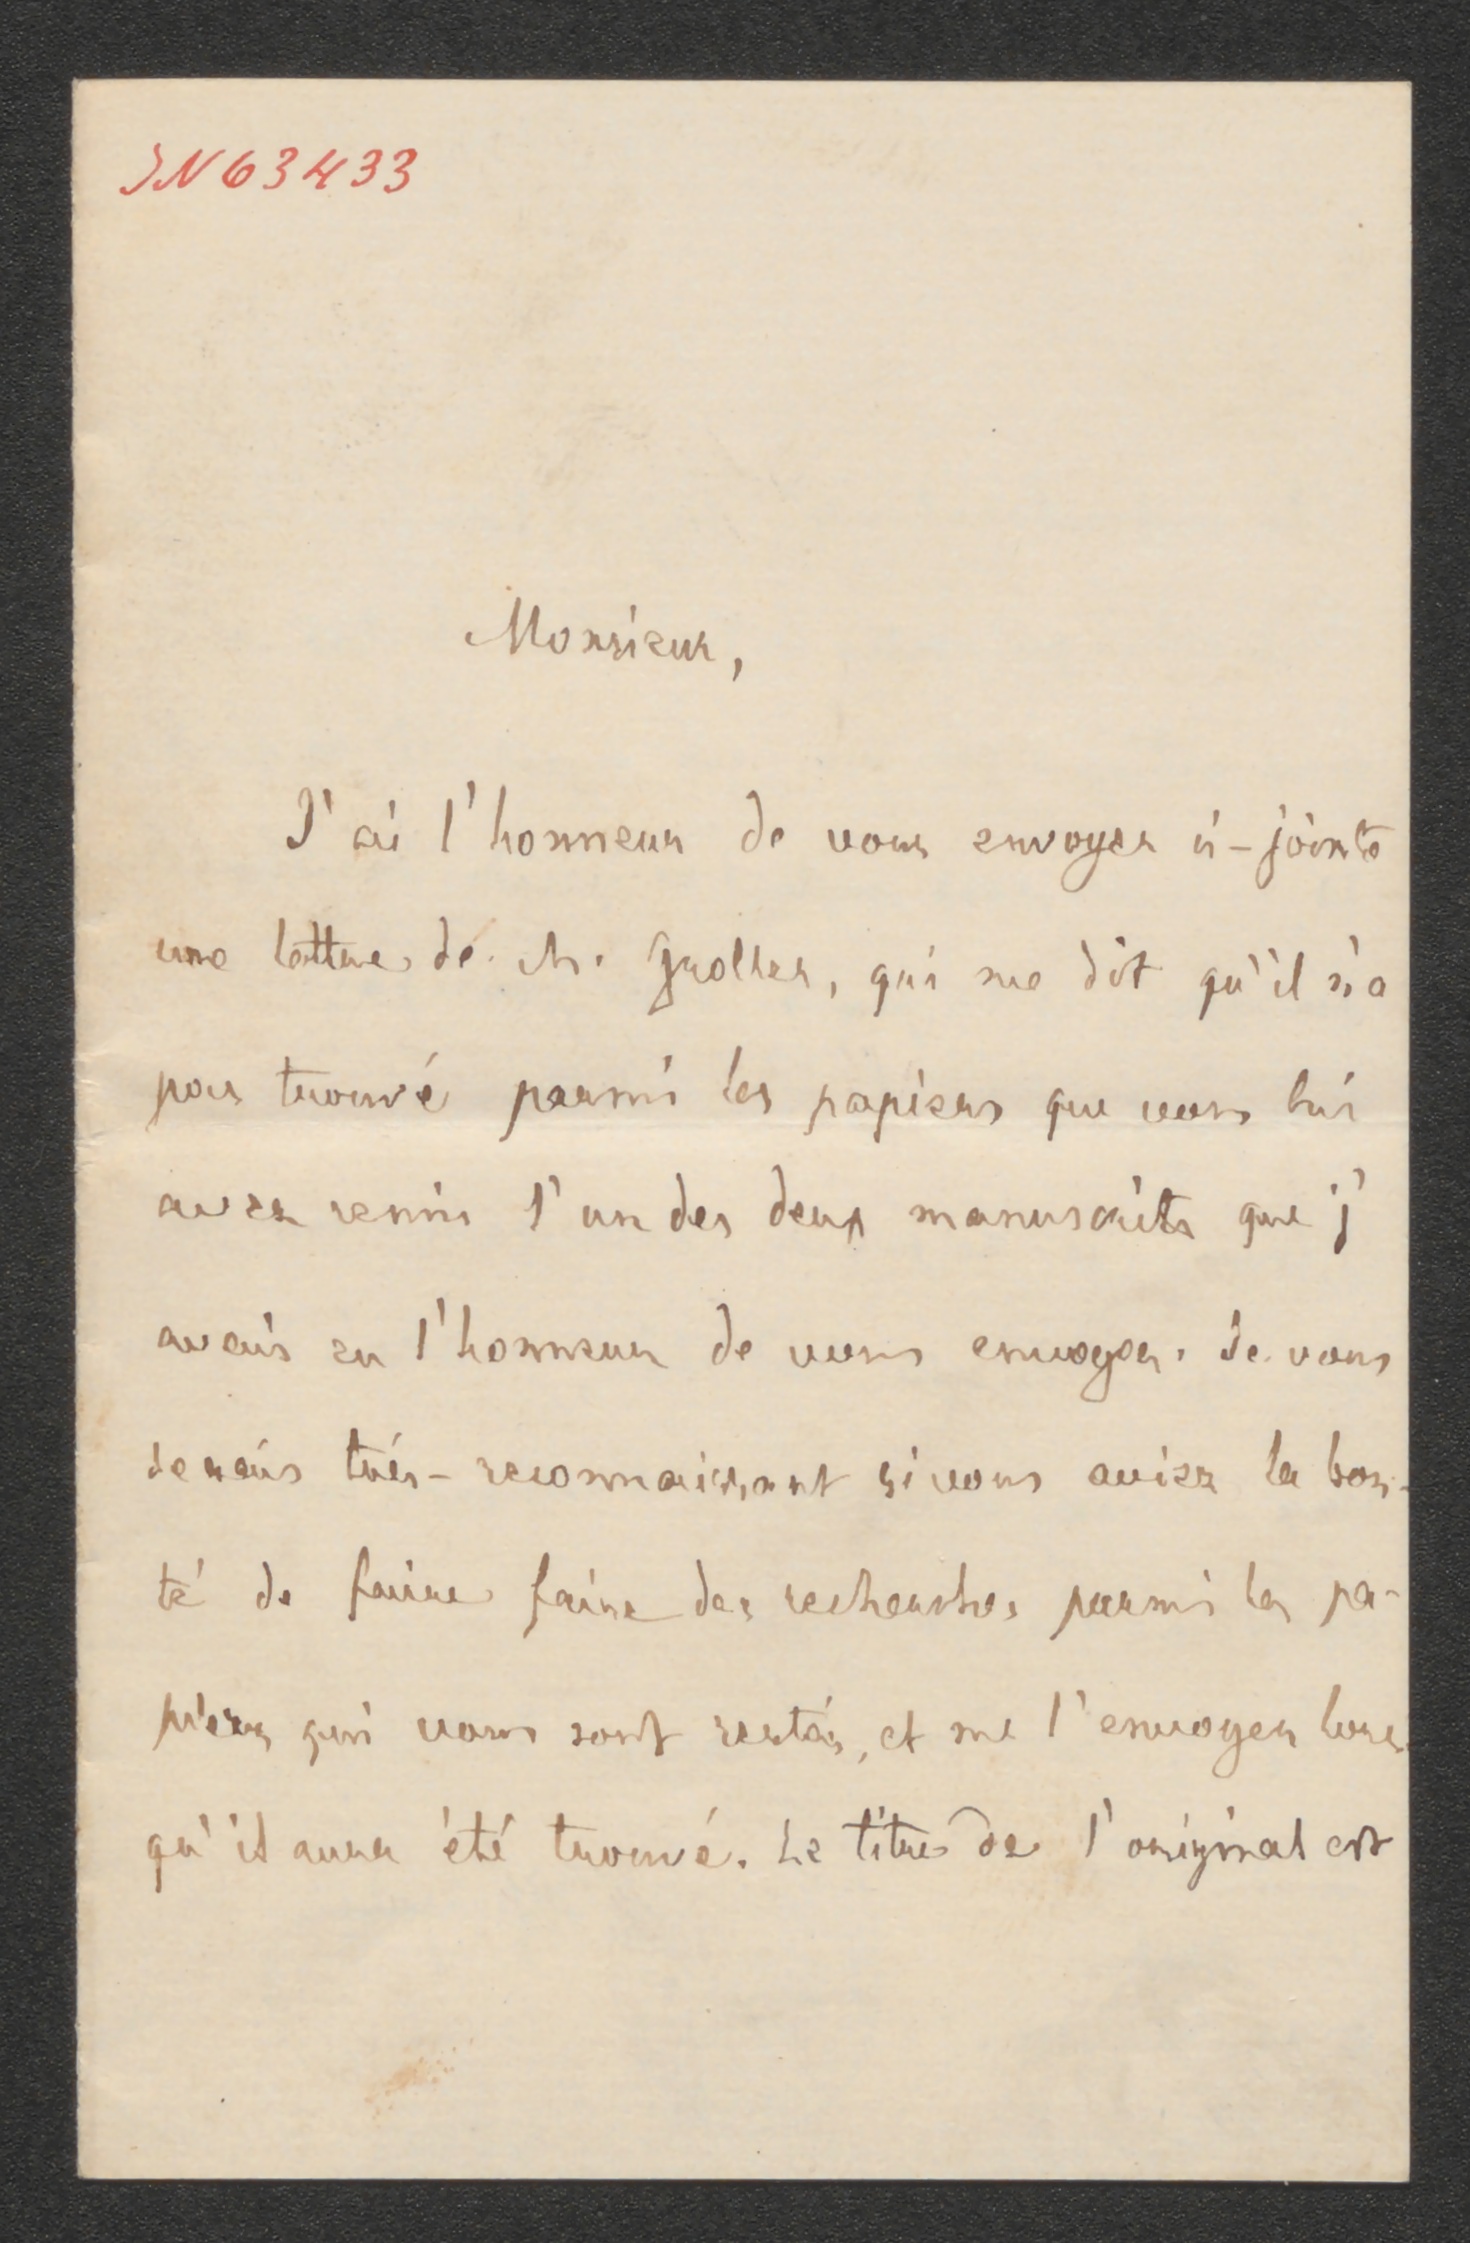 IN 63433
Monsieur,
J'ai l'honneur de vous envoyer ci-jointe
une lettre de M. Groller, qui me dit qu'il n'a
pas trouvé parmi les papiers que vous lui
avez remis l'un des deux manuscrits que j'
avais eu l'honneur de vous envoyer. Je vous
serais très-reconnaissant si vous aviez la bon-
té de faire faire des recherches parmi les pa-
piers qui vous sont restés, et me l'envoyer lors-
qu'il aura été trouvé. Le titre de l'original est